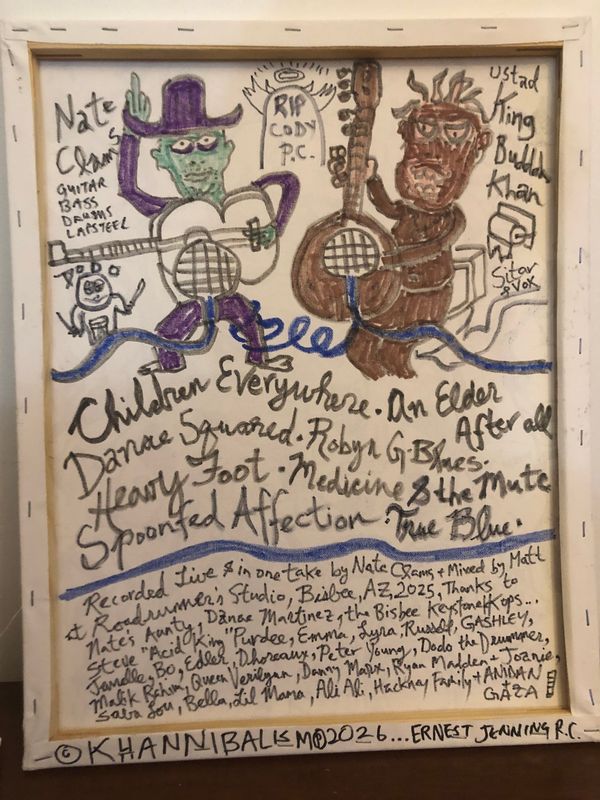 Nate
Clams
GUITAR
BASS
DRUMS
LAPSTEEL
DODO
RIP
CODY
P.C.
Ustad
King
Buddah
Khan
Sitar
& VOX
Children Everywhere · An Elder
After all
Danae Squared · Robyn G. Blues ·
Heavy Foot · Medicine & the Mute
Spoonfed Affection · True Blue ·
Recorded Live & in one take by Nate Clams & Mixed by Matt
at Roadrunner's Studio, Bisbee, AZ, 2025, Thanks to
Nate's Aunty, Danae Martinez, the Bisbee Keystone Kops...
Steve "Acid King" Purdee, Emma, Lyra, Russell, GASHLEY,
Janelle, Bo, Edler, Dhoreaux, Peter Young, Dodo the Drummer,
Malik Rahim, Queen Verilyan, Danny Marx, Ryan Madden & Joanie,
Saba Lou, Bella, Lil Mama, Ali Ali, Hackney Family &
GAZA
© KHANNIBALISM ℗ 2026 ... ERNEST JENNING R.C.